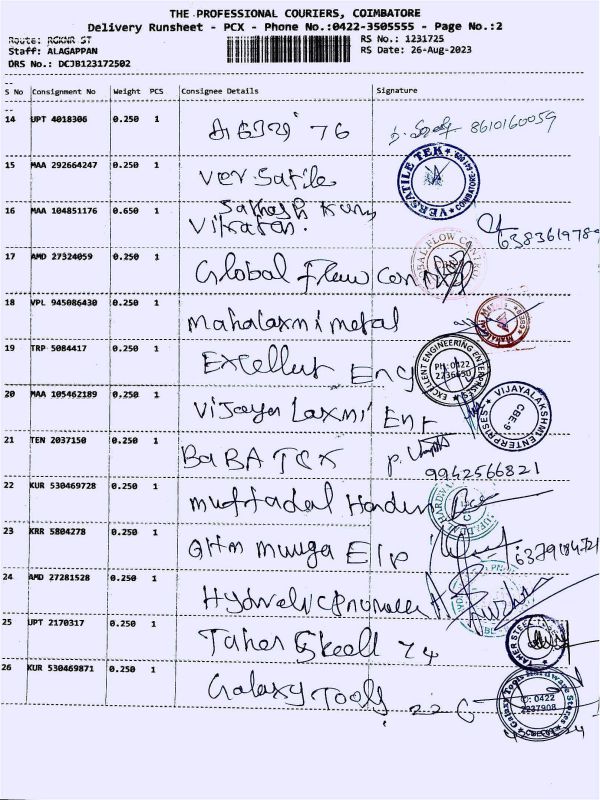 THE PROFESSIONAL COURIERS, COIMBATORE
Delivery Runsheet - PCX - Phone No.:0422-3505555 - Page No.:2
Route: RGKNR ST
RS No.: 1231725
Staff: ALAGAPPAN
RS Date: 26-Aug-2023
DRS No.: DCJB123172502
S No Consignment No Weight PCS Consignee Details Signature
14 UPT 4018306 0.250 1 76 8610160059
15 MAA 292664247 0.250 1 Versatile VERSATILE TEK COIMBATORE
16 MAA 104851176 0.650 1 Vikatan. 6383619789
17 AMD 27324059 0.250 1 Global Flow Control
18 VPL 945086430 0.250 1 mahalaxmi metal
19 TRP 5084417 0.250 1 Excellent Eng EXCELLENT ENGINEERING ENTERPRISES PH: 0422 2236430
20 MAA 105462189 0.250 1 Vijaya Laxmi Ent VIJAYALAKSHMI ENTERPRISES CBE-9.
21 TEN 2037150 0.250 1 BaBA TEX 9942566821
22 KUR 530469728 0.250 1
23 KRR 5804278 0.250 1 Elp
24 AMD 27281528 0.250 1
25 UPT 2170317 0.250 1 Taher Steell 74 TAHER STEEL
26 KUR 530469871 0.250 1 Galaxy Tools 226 Galaxy Tools Hardware Stores 0422 2237908